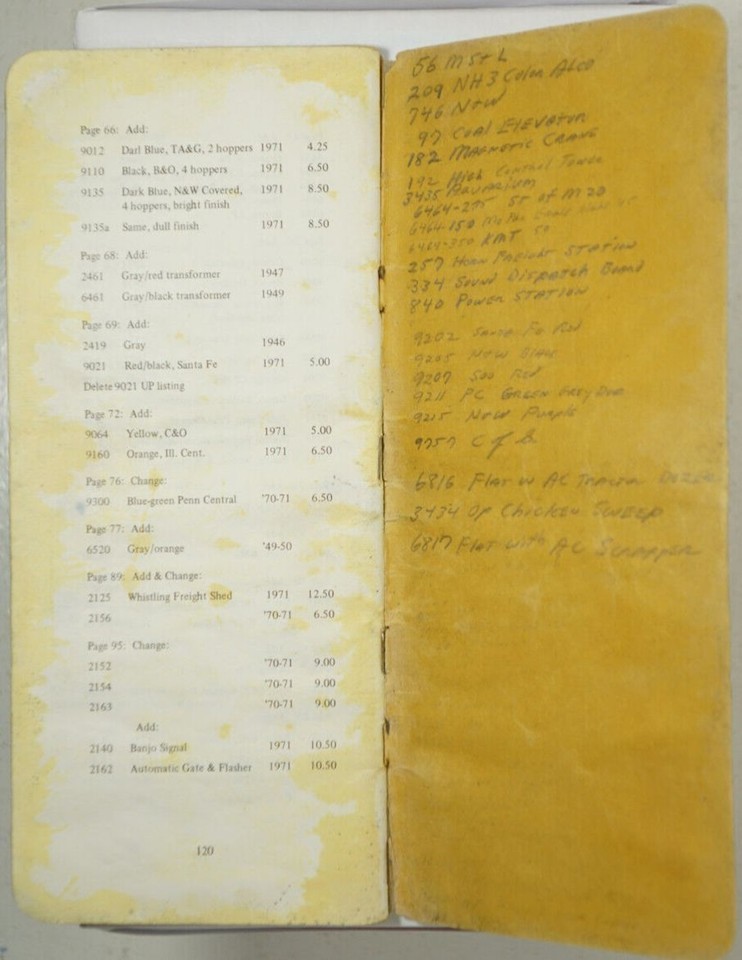 Page 66: Add:
9012 Darl Blue, TA&G, 2 hoppers 1971 4.25
9110 Black, B&O, 4 hoppers 1971 6.50
9135 Dark Blue, N&W Covered, 1971 8.50
4 hoppers, bright finish
9135a Same, dull finish 1971 8.50
Page 68: Add:
2461 Gray/red transformer 1947
6461 Gray/black transformer 1949
Page 69: Add:
2419 Gray 1946
9021 Red/black, Santa Fe 1971 5.00
Delete 9021 UP listing
Page 72: Add:
9064 Yellow, C&O 1971 5.00
9160 Orange, Ill. Cent. 1971 6.50
Page 76: Change:
9300 Blue-green Penn Central '70-71 6.50
Page 77: Add:
6520 Gray/orange '49-50
Page 89: Add & Change:
2125 Whistling Freight Shed 1971 12.50
2156 '70-71 6.50
Page 95: Change:
2152 '70-71 9.00
2154 '70-71 9.00
2163 '70-71 9.00
Add:
2140 Banjo Signal 1971 10.50
2162 Automatic Gate & Flasher 1971 10.50
120
56 M St L
209 NH 3 Color Alco
746 N+W
97 Coal Elevator
182 Magnetic Crane
192 High Control Tower
3435 Aquarium
6464-275 St of M
6464-150 Mo Pac
6464-350 KMT
257 Horn Freight Station
334 Sound Dispatch Board
840 Power Station
9202 Santa Fe Red
9205 N+W Blue
9207 Soo Red
9211 PC Green Grey Door
9215 N+W Purple
9757 C of G
6816 Flat w AC Tractor Dozer
3434 Op Chicken Sweep
6817 Flat with AC Scrapper